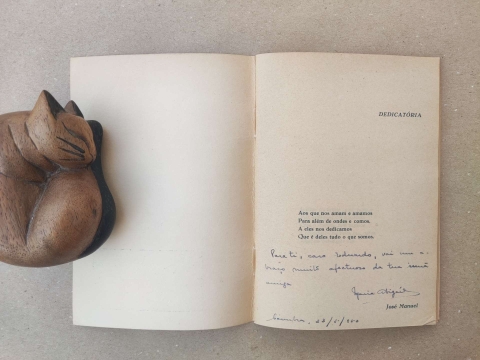 DEDICATÓRIA
Aos que nos amam e amamos
Para além de ondes e comos.
A eles nos dedicamos
Que é deles tudo o que somos.
Para ti, caro Eduardo, vai um a-
braço muito afectuoso da tua irmã
amiga
José Manuel